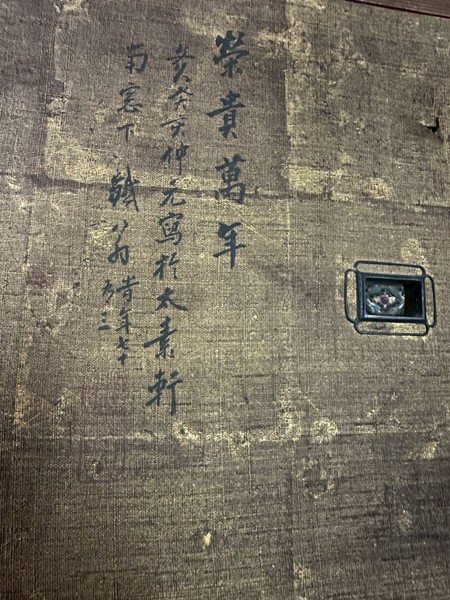 榮貴萬年
癸亥仲元寫於太素軒
南窓下鐵翁時年七十
有三